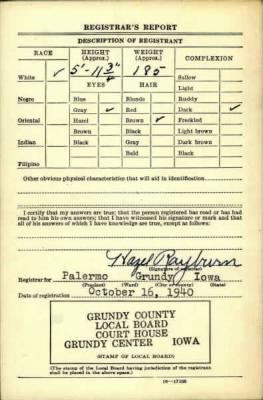 REGISTRAR'S REPORT
DESCRIPTION OF REGISTRANT
RACE HEIGHT (Approx.) WEIGHT (Approx.) COMPLEXION
White ✓ 5'-11 3/4" 185 Sallow
Light
EYES HAIR
Negro Blue Blonde Ruddy
Gray ✓ Red Dark ✓
Oriental Hazel Brown ✓ Freckled
Brown Black Light brown
Indian Black Gray Dark brown
Bald Black
Filipino
Other obvious physical characteristics that will aid in identification
I certify that my answers are true; that the person registered has read or has had
read to him his own answers; that I have witnessed his signature or mark and that
all of his answers of which I have knowledge are true, except as follows:
Hazel Rayburn
(Signature of registrar)
Registrar for Palermo Grundy Iowa
(Precinct) (Ward) (City or county) (State)
Date of registration October 16, 1940
GRUNDY COUNTY
LOCAL BOARD
COURT HOUSE
GRUNDY CENTER IOWA
(STAMP OF LOCAL BOARD)
(The stamp of the Local Board having jurisdiction of the registrant
shall be placed in the above space.)